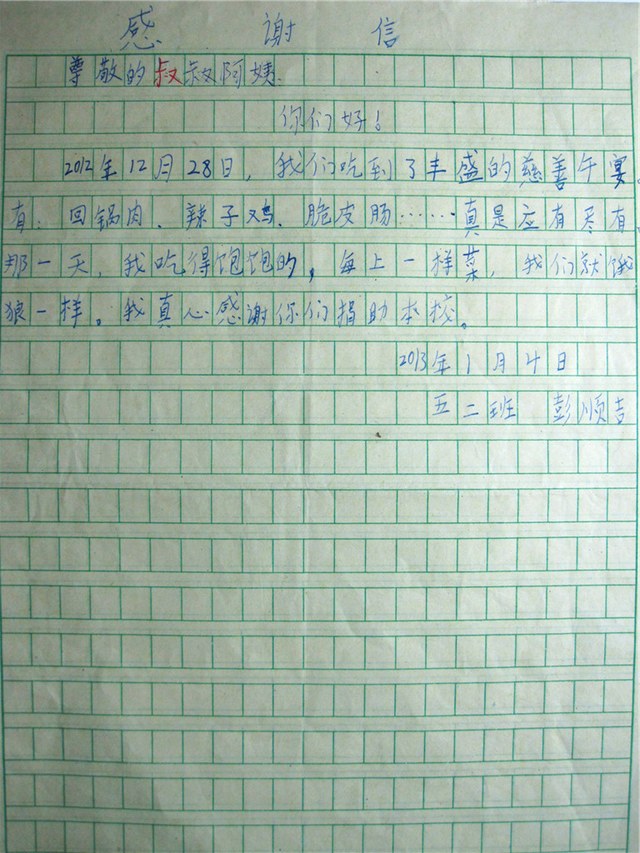 感谢信
尊敬的叔叔阿姨
你们好！
2012年12月28日，我们吃到了丰盛的慈善午宴
有：回锅肉、辣子鸡、脆皮肠……真是应有尽有
那一天，我吃得饱饱的，每上一样菜，我们就饿
狼一样。我真心感谢你们捐助本校。
2013年1月4日
五二班 彭顺吉